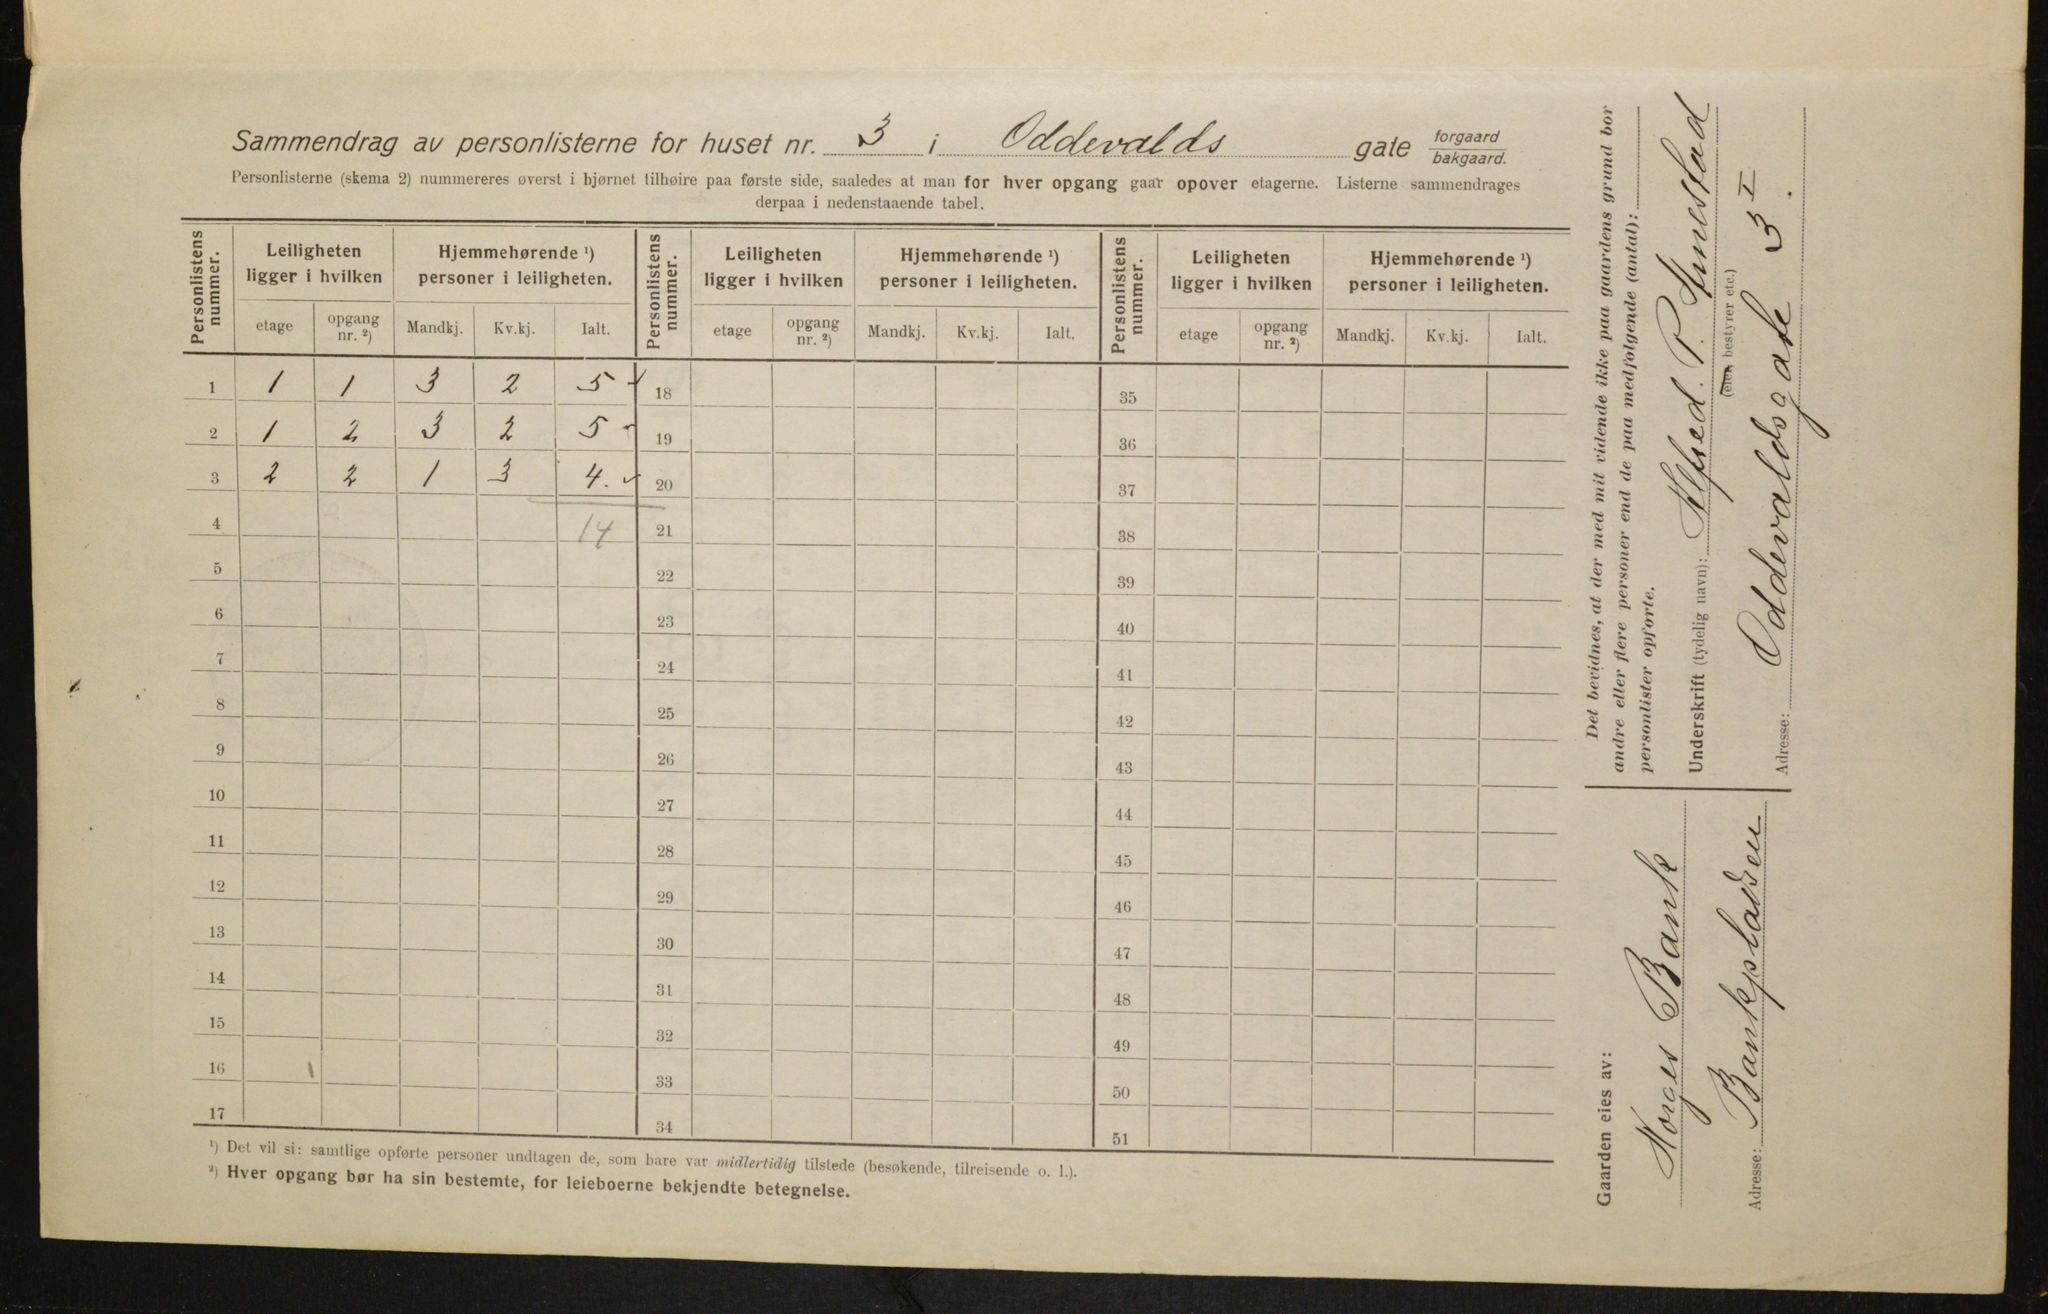 Sammendrag av personlisterne for huset nr. 3 i Oddevalds gate forgaard bakgaard.
Personlisterne (skema 2) nummereres øverst i bjørnet tilhøire paa første side, saaledes at man for hver opgang gaar opover etagerne. Listerne sammendrages
derpaa i nedenstaaende tabel.
Personlistens nummer. Leiligheten ligger i hvilken Hjemmehørende ¹) personer i leiligheten. Personlistens nummer. Leiligheten ligger i hvilken Hjemmehørende ¹) personer i leiligheten. Personlistens nummer. Leiligheten ligger i hvilken Hjemmehørende ¹) personer i leiligheten.
etage opgang nr. ²) Mandkj. Kv.kj. Ialt. etage opgang nr. ²) Mandkj. Kv.kj. Ialt. etage opgang nr. ²) Mandkj. Kv.kj. Ialt.
1 1 1 3 2 5 18 35
2 1 2 3 2 5 19 36
3 2 2 1 3 4. 20 37
4 14 21 38
5 22 39
6 23 40
7 24 41
8 25 42
9 26 43
10 27 44
11 28 45
12 29 46
13 30 47
14 31 48
15 32 49
16 33 50
17 34 51
¹) Det vil si: samtlige opførte personer undtagen de, som bare var midlertidig tilstede (besøkende, tilreisende o. l.).
²) Hver opgang bør ha sin bestemte, for leieboerne bekjendte betegnelse.
Det bevidnes, at der med mit vidende ikke paa gaardens grund bor
andre eller flere personer end de paa medfølgende (antal):
personlister opførte.
Underskrift (tydelig navn): Alfred. P.
(eier, bestyrer etc.)
Adresse: Oddevaldsgate 3 I.
Gaarden eies av:
Norges Bank
Adresse: Bankpladsen